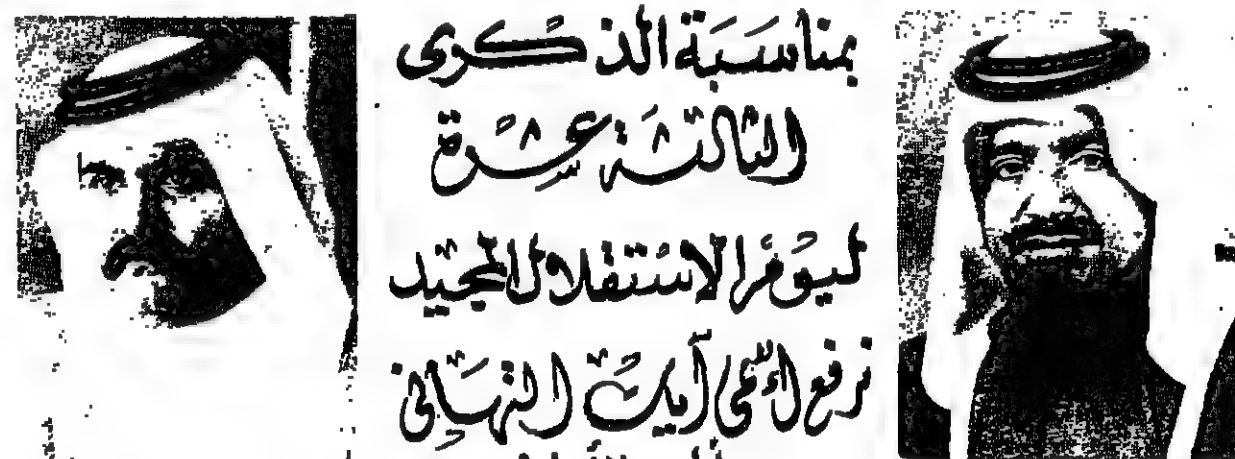 بمناسبة الذكرى
الثالثة عشرة
ليوم الاستقلال المجيد
نرفع أسمى آيات التهاني